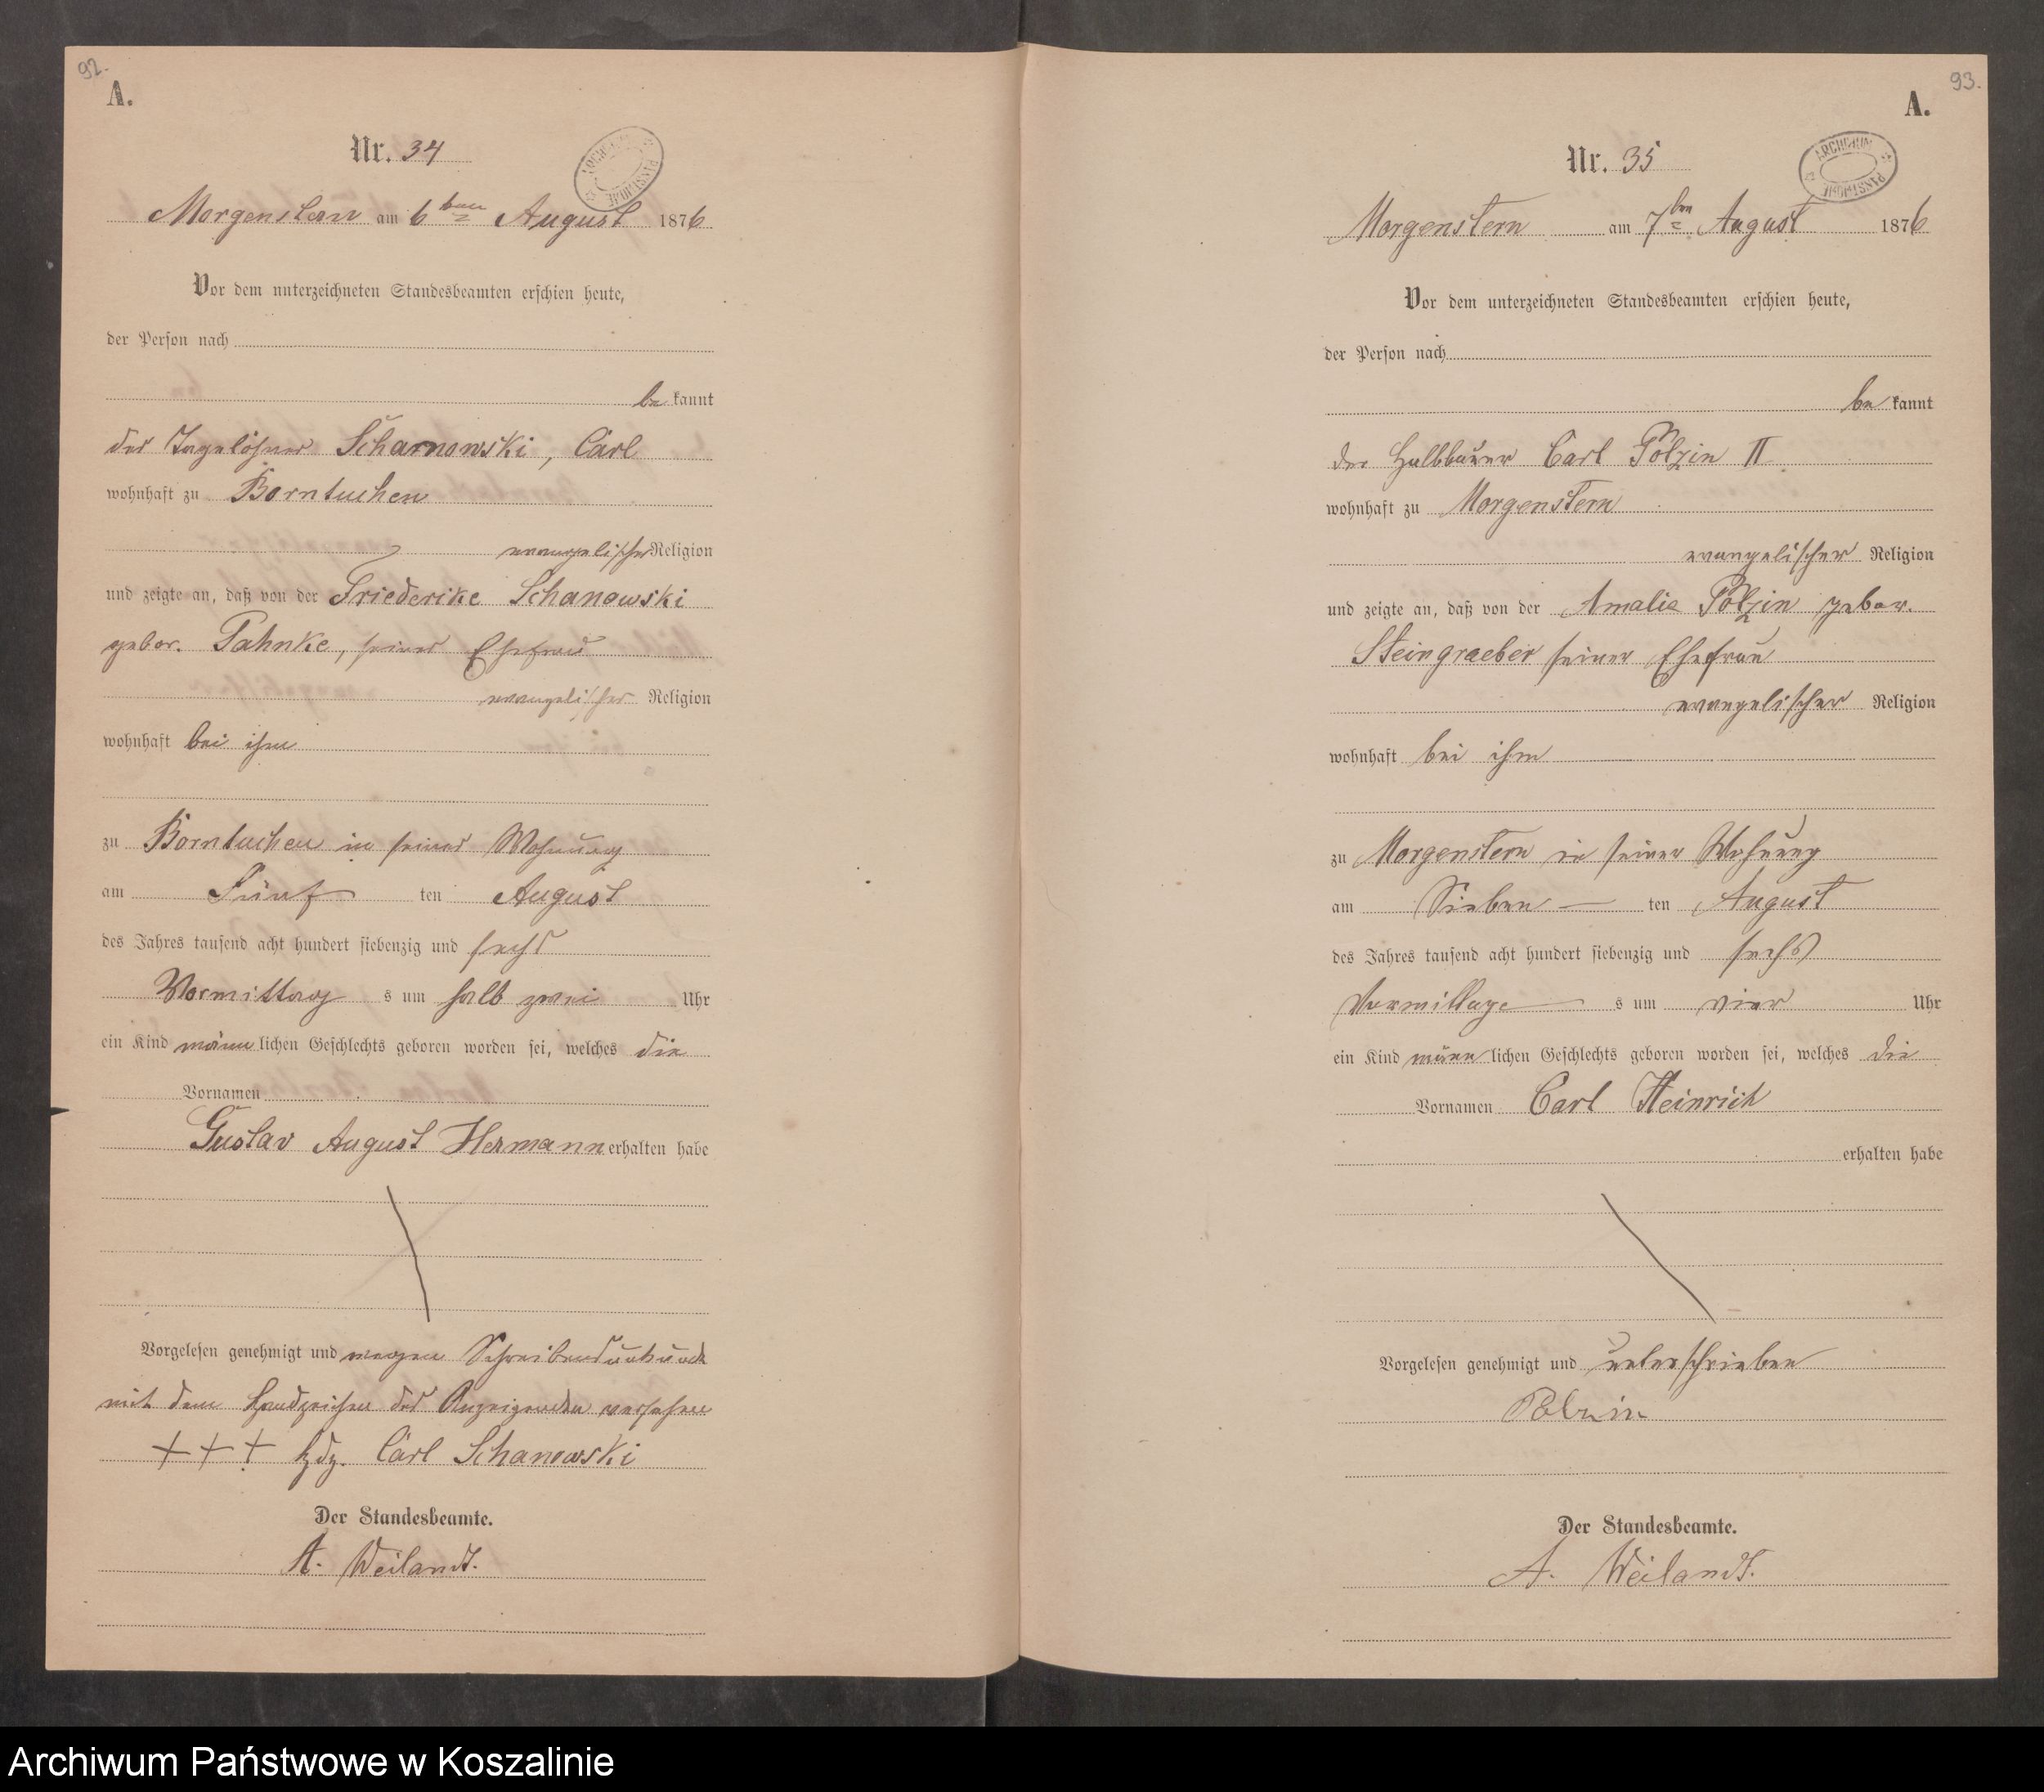 92.
A.
Nr. 34
ARCHIWUM PAŃSTWOWE
Morgenstern am 6ten August 1876
Vor dem unterzeichneten Standesbeamten erschien heute,
der Person nach
be kannt
der Tagelöhner Scharnowski, Carl
wohnhaft zu Borntuchen
evangelischer Religion
und zeigte an, daß von der Friederike Schanowski
gebor. Pahnke, seiner Ehefrau
evangelischer Religion
wohnhaft bei ihm
zu Borntuchen in seiner Wohnung
am Fünf ten August
des Jahres tausend acht hundert siebenzig und sechs
Vormittag s um halb zwei Uhr
ein Kind männ lichen Geschlechts geboren worden sei, welches die
Vornamen
Gustav August Hermann erhalten habe
Vorgelesen genehmigt und wegen Schreibensunkunde
mit dem Handzeichen des Anzeigenden versehen
+++ hdz. Carl Schanowski
Der Standesbeamte.
A. Weilandt.
93.
A.
Nr. 35
ARCHIWUM PAŃSTWOWE
Morgenstern am 7ten August 1876
Vor dem unterzeichneten Standesbeamten erschien heute,
der Person nach
be kannt
der Halbbauer Carl Pölzin II
wohnhaft zu Morgenstern
evangelischer Religion
und zeigte an, daß von der Amalie Pölzin gebor.
Steingraeber seiner Ehefrau
evangelischer Religion
wohnhaft bei ihm
zu Morgenstern in seiner Wohnung
am Sieben ten August
des Jahres tausend acht hundert siebenzig und sechs
Vormittage s um vier Uhr
ein Kind männ lichen Geschlechts geboren worden sei, welches die
Vornamen Carl Heinrich
erhalten habe
Vorgelesen genehmigt und unterschrieben
Polzin
Der Standesbeamte.
A. Weilandt.
Archiwum Państwowe w Koszalinie